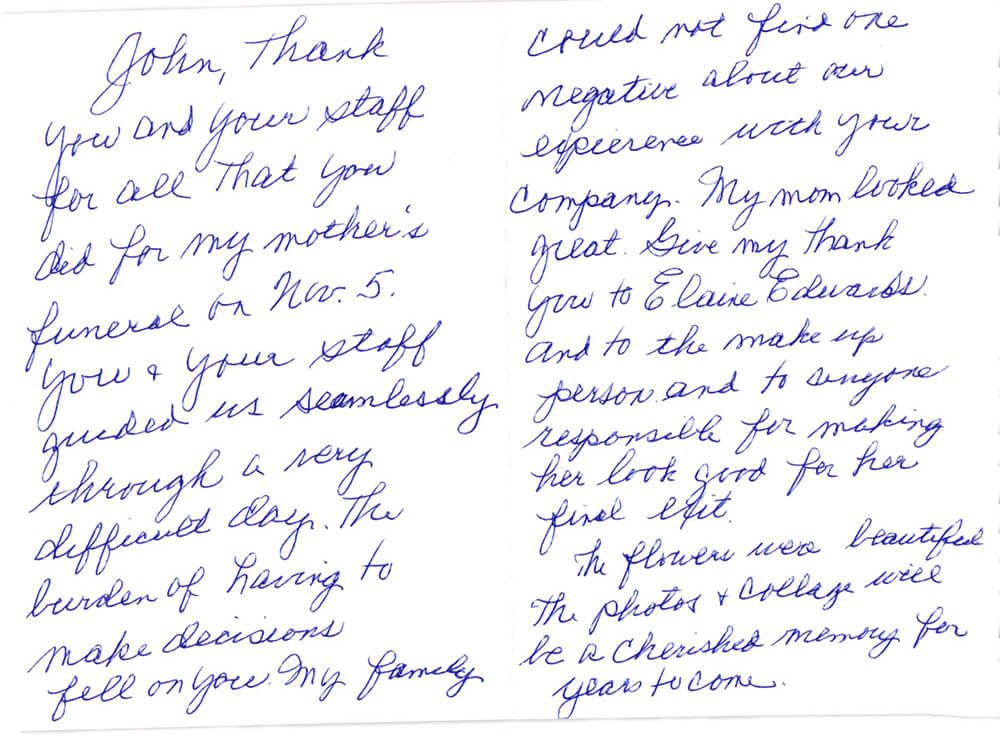 John, Thank
you and your staff
for all that you
did for my mother's
funeral on Nov. 5.
You & your staff
guided us seamlessly
through a very
difficult day. The
burden of having to
make decisions
fell on you. My family
could not find one
negative about our
expierence with your
company. My mom looked
great. Give my thank
you to Elaine Edwards.
and to the make up
person and to anyone
responsible for making
her look good for her
final exit.
The flowers were beautiful
The photos & collage will
be a cherished memory for
years to come.